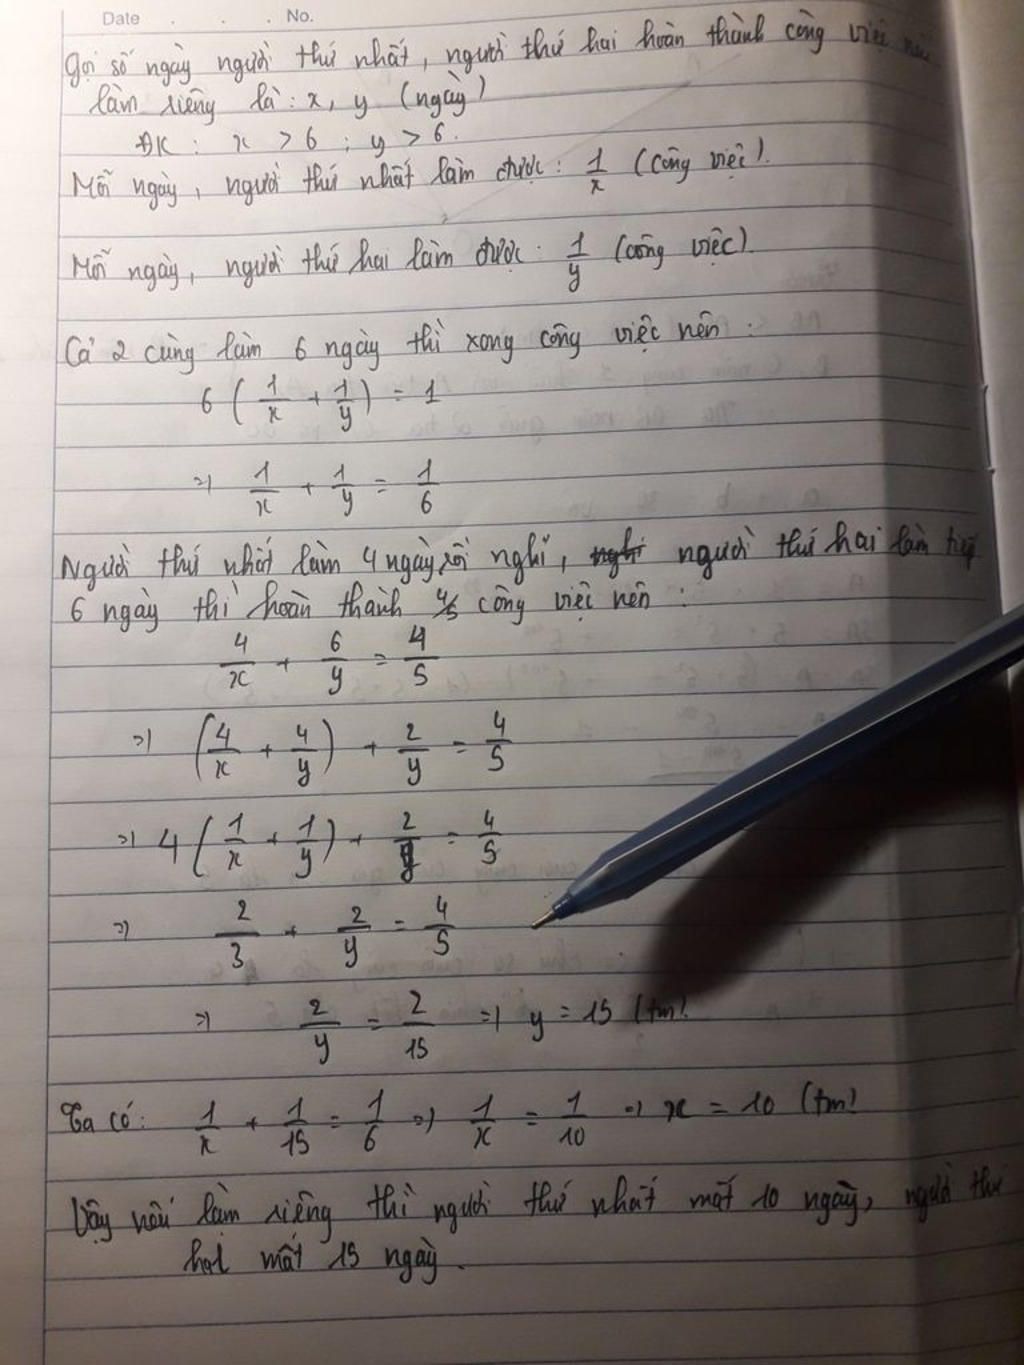 Date . . . No.
Gọi số ngày người thứ nhất, người thứ hai hoàn thành công việc nếu
làm riêng là : x, y (ngày)
ĐK : x > 6 ; y > 6.
Mỗi ngày, người thứ nhất làm được : 1/x (công việc).
Mỗi ngày, người thứ hai làm được : 1/y (công việc).
Cả 2 cùng làm 6 ngày thì xong công việc nên :
6 ( 1/x + 1/y ) = 1
=> 1/x + 1/y = 1/6
Người thứ nhất làm 4 ngày rồi nghỉ, người thứ hai làm tiếp
6 ngày thì hoàn thành 4/5 công việc nên :
4/x + 6/y = 4/5
=> ( 4/x + 4/y ) + 2/y = 4/5
=> 4 ( 1/x + 1/y ) + 2/y = 4/5
=> 2/3 + 2/y = 4/5
=> 2/y = 2/15 => y = 15 (tm)
Ta có : 1/x + 1/15 = 1/6 => 1/x = 1/10 => x = 10 (tm)
Vậy nếu làm riêng thì người thứ nhất mất 10 ngày, người thứ
hai mất 15 ngày.